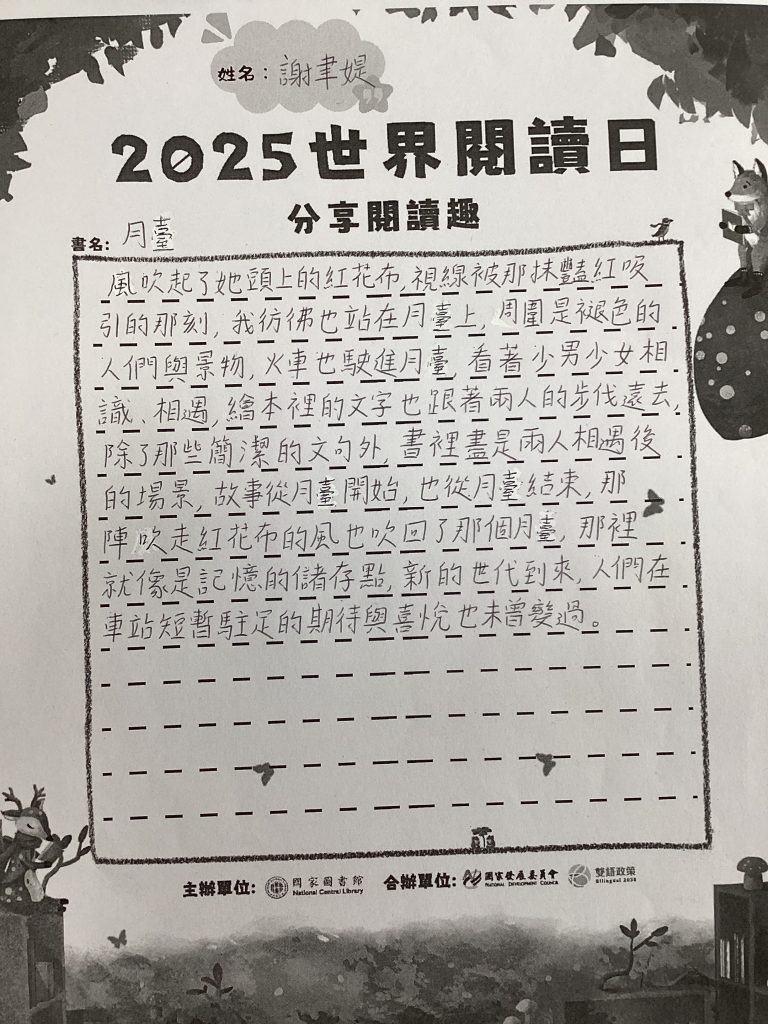 姓名：謝聿媞
2025世界閱讀日
分享閱讀趣
書名：月臺
風吹起了她頭上的紅花布,視線被那抹豔紅吸
引的那刻,我彷彿也站在月臺上,周圍是褪色的
人們與景物,火車也駛進月臺,看著少男少女相
識、相遇,繪本裡的文字也跟著兩人的步伐遠去,
除了那些簡潔的文句外,書裡盡是兩人相遇後
的場景,故事從月臺開始,也從月臺結束,那
陣吹走紅花布的風也吹回了那個月臺,那裡
就像是記憶的儲存點,新的世代到來,人們在
車站短暫駐足的期待與喜悅也未曾變過。
主辦單位: 國家圖書館 National Central Library 合辦單位: 國家發展委員會 NATIONAL DEVELOPMENT COUNCIL 雙語政策 Bilingual 2030